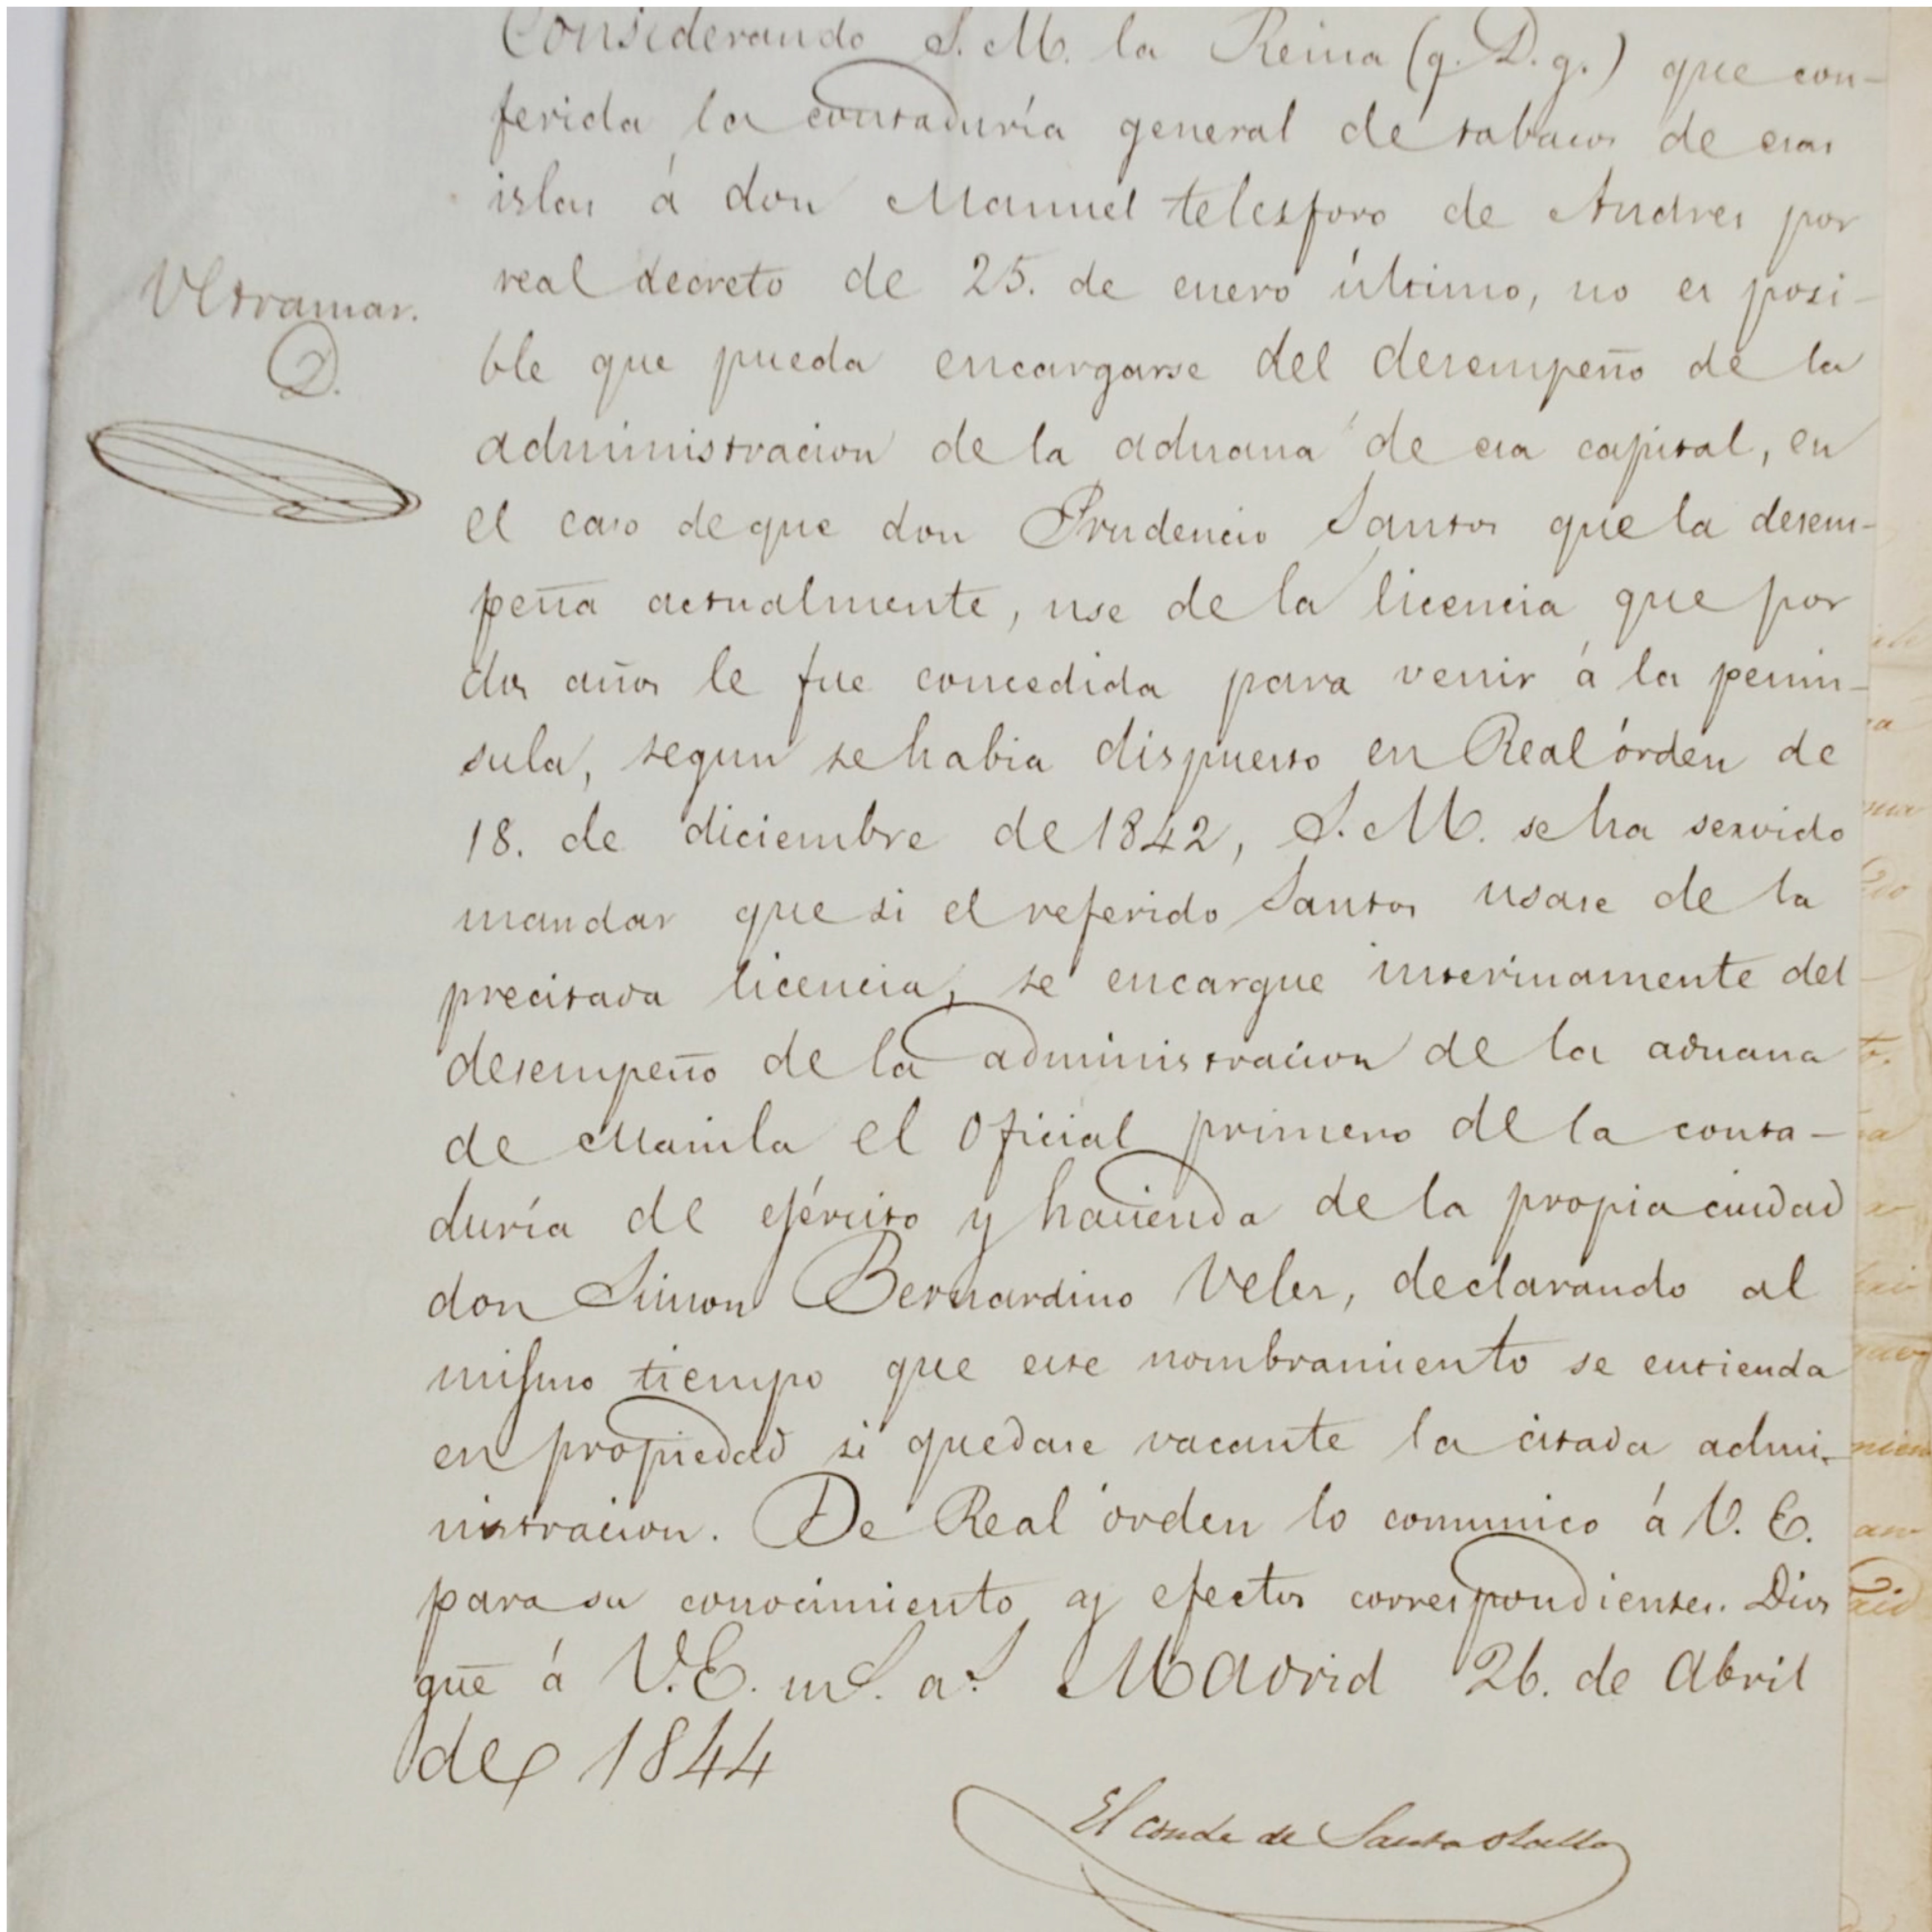 Considerando S. M. la Reina (q. D. g.) que con-
ferida la contaduría general de tabacos de esas
islas á don Manuel telesforo de Andres por
real decreto de 25. de enero último, no es posi-
Ultramar.
2.
ble que pueda encargarse del desempeño de la
administracion de la aduana de esa capital, en
el caso de que don Prudencio Santos que la desem-
peña actualmente, use de la licencia que por
dos años le fue concedida para venir á la penin-
sula, segun se habia dispuesto en Real órden de
18. de diciembre de 1842, S. M. se ha servido
mandar que si el referido Santos usase de la
precitada licencia, se encargue interinamente del
desempeño de la administracion de la aduana
de Manila el Oficial primero de la conta-
duría de ejército y hacienda de la propia ciudad
don Simon Bernardino Veles, declarando al
mismo tiempo que este nombramiento se entienda
en propiedad si quedase vacante la citada admi-
nistracion. De Real órden lo comunico á V. E.
para su conocimiento y efectos correspondientes. Dios
gue á V. E. m.s a.s Madrid 26. de Abril
de 1844
El conde de Santa Olalla